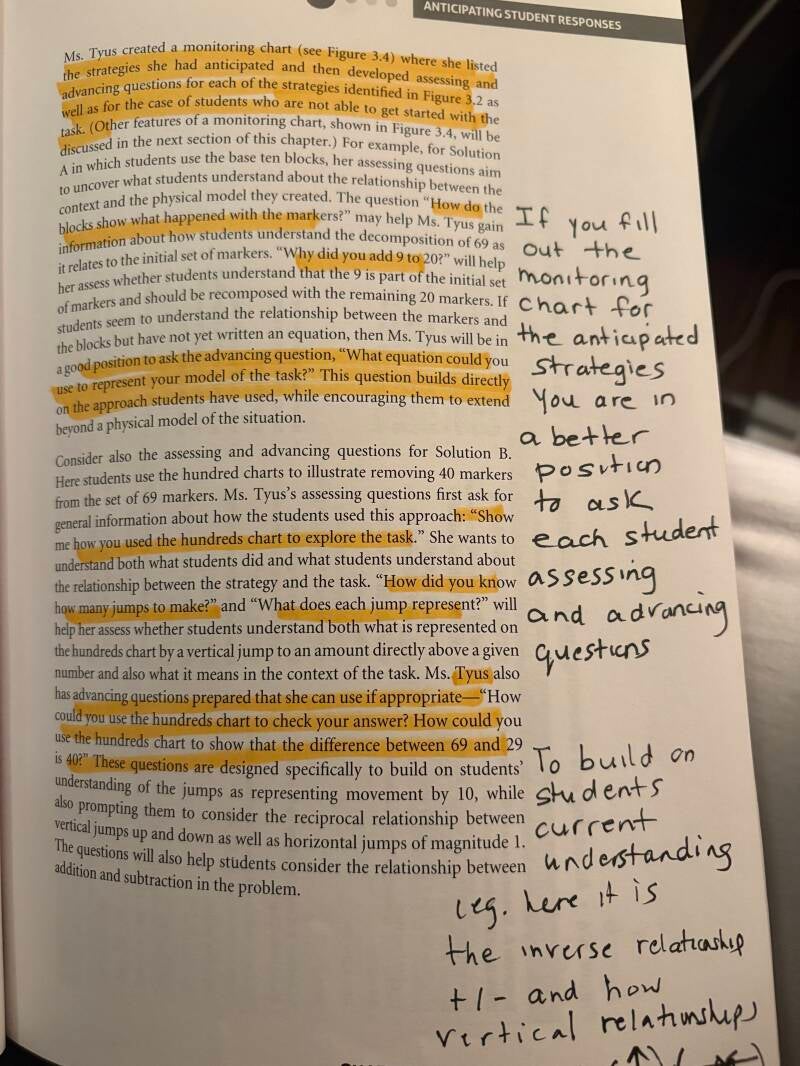 ANTICIPATING STUDENT RESPONSES
Ms. Tyus created a monitoring chart (see Figure 3.4) where she listed
the strategies she had anticipated and then developed assessing and
advancing questions for each of the strategies identified in Figure 3.2 as
well as for the case of students who are not able to get started with the
task. (Other features of a monitoring chart, shown in Figure 3.4, will be
discussed in the next section of this chapter.) For example, for Solution
A in which students use the base ten blocks, her assessing questions aim
to uncover what students understand about the relationship between the
context and the physical model they created. The question “How do the
blocks show what happened with the markers?” may help Ms. Tyus gain
information about how students understand the decomposition of 69 as
it relates to the initial set of markers. “Why did you add 9 to 20?” will help
her assess whether students understand that the 9 is part of the initial set
of markers and should be recomposed with the remaining 20 markers. If
students seem to understand the relationship between the markers and
the blocks but have not yet written an equation, then Ms. Tyus will be in
a good position to ask the advancing question, “What equation could you
use to represent your model of the task?” This question builds directly
on the approach students have used, while encouraging them to extend
beyond a physical model of the situation.
Consider also the assessing and advancing questions for Solution B.
Here students use the hundred charts to illustrate removing 40 markers
from the set of 69 markers. Ms. Tyus’s assessing questions first ask for
general information about how the students used this approach: “Show
me how you used the hundreds chart to explore the task.” She wants to
understand both what students did and what students understand about
the relationship between the strategy and the task. “How did you know
how many jumps to make?” and “What does each jump represent?” will
help her assess whether students understand both what is represented on
the hundreds chart by a vertical jump to an amount directly above a given
number and also what it means in the context of the task. Ms. Tyus also
has advancing questions prepared that she can use if appropriate—“How
could you use the hundreds chart to check your answer? How could you
use the hundreds chart to show that the difference between 69 and 29
is 40?” These questions are designed specifically to build on students’
understanding of the jumps as representing movement by 10, while
also prompting them to consider the reciprocal relationship between
vertical jumps up and down as well as horizontal jumps of magnitude 1.
The questions will also help students consider the relationship between
addition and subtraction in the problem.
If you fill
out the
monitoring
chart for
the anticipated
strategies
you are in
a better
position
to ask
each student
assessing
and advancing
questions
To build on
students
current
understanding
(eg. here it is
the inverse relationship
+/- and how
vertical relationships